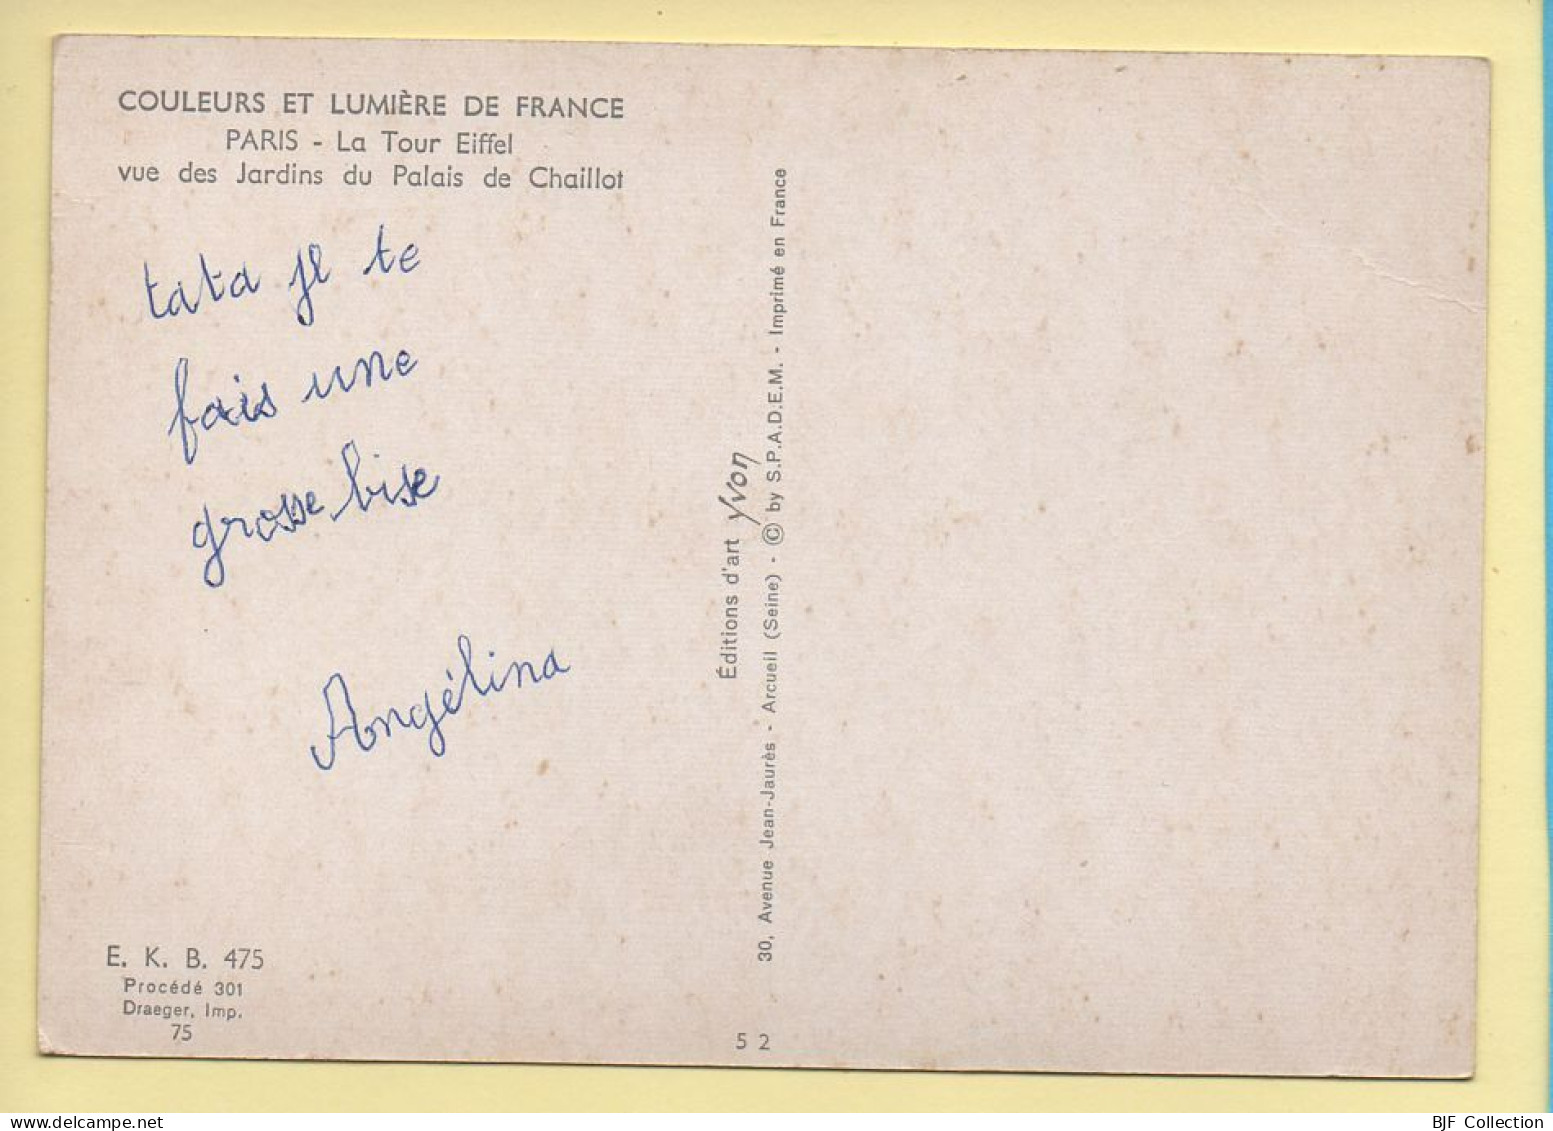 COULEURS ET LUMIÈRE DE FRANCE
PARIS - La Tour Eiffel
vue des Jardins du Palais de Chaillot
tata je te
fais une
grosse bise
Angélina
E. K. B. 475
Procédé 301
Draeger, Imp.
75
Éditions d'art Yvon
30, Avenue Jean-Jaurès - Arcueil (Seine) - © by S.P.A.D.E.M. - Imprimé en France
5 2
BJF Collection